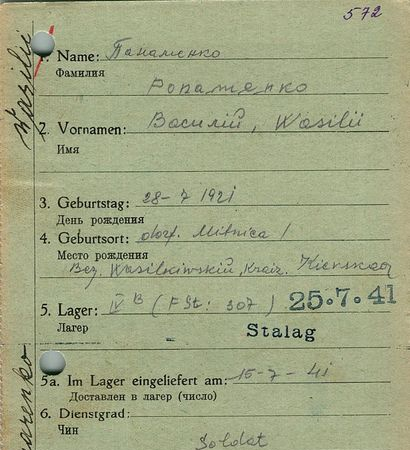 572
1. Name: Панаженко
Фамилия
Popaшenko
2. Vornamen: Василий, Wasilii
Имя
3. Geburtstag: 28-7 1921
День рождения
4. Geburtsort: dorf. Mitnica /
Место рождения
Bez. Wasilkiwskii, Kreiz.
5. Lager: IV B (F St: 307) 25.7.41
Лагер
Stalag
5a. Im Lager eingeliefert am: 15-7-41
Доставлен в лагер (число)
6. Dienstgrad:
Чин
Soldat
Wasilii